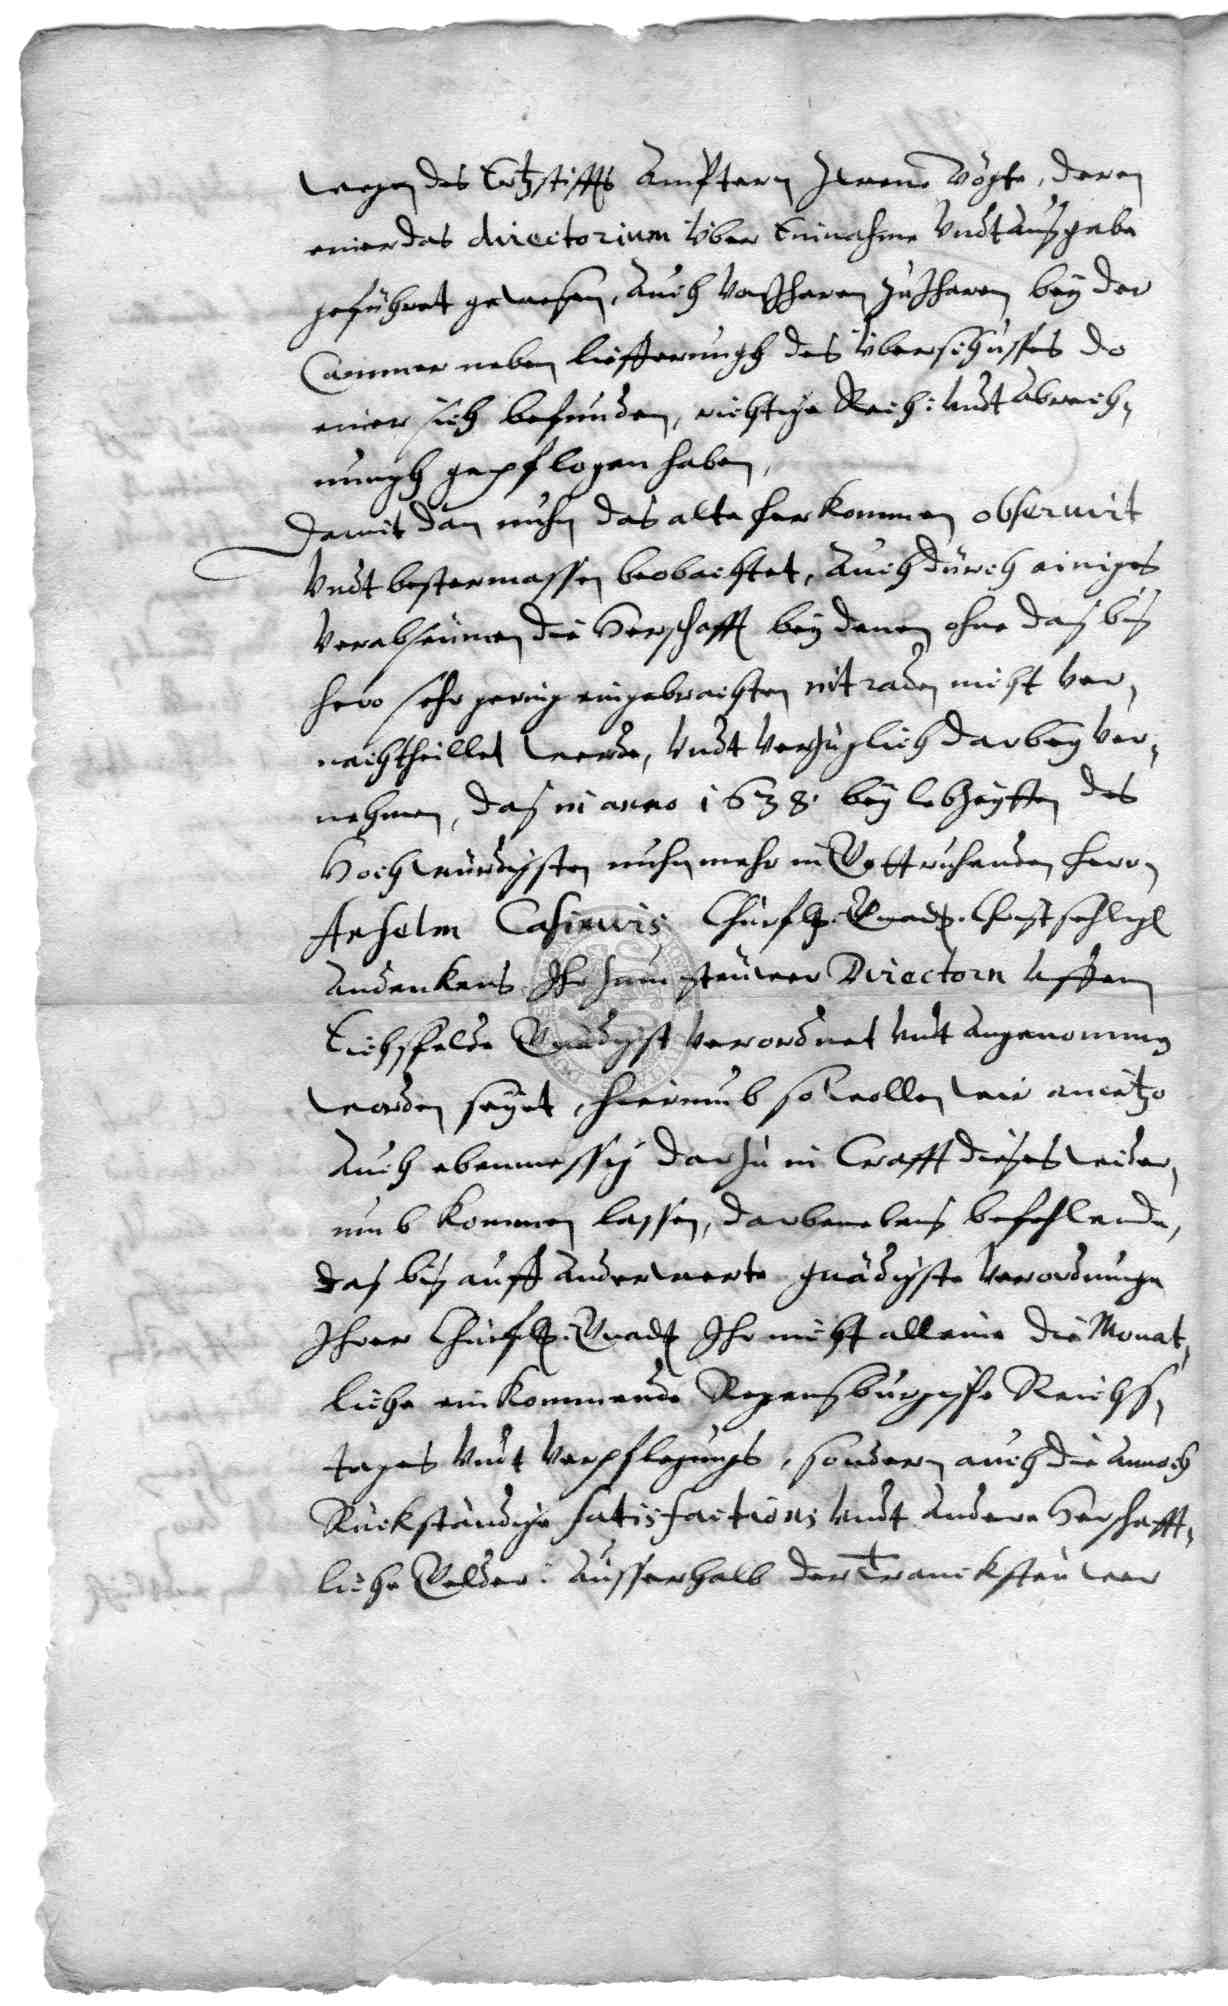 wegen des Ertzstiffts Ämptern zweene Vögte, deren
einer das directorium über Einnahme Undt Außgabe
geführet gewesen, Auch von Jharen zu Jharen bey der
Cammer neben liefferungh des überschusses do
einer sich befunden, richtige Rech: undt Abrech,
nungh gepflogen haben,
Damit dan nuhn das alte herkommen observirt
Undt bestermassen beobachtet, Auch durch einiges
Verabseumen die Herschafft bey denen ohne daß biß
hero sehr gering eingebrachten intraden nicht ver,
nachtheillet werde, Undt wir zuglich darbey ver,
nehmen, daß in anno 1638. bey lebzeytten des
Hochwürdigsten nuhnmehr in Gott ruhenden herrn
Anselm Casimirs Churfl: Gnad: Christsehligl
Andenkens Ihr zum steuwer Directorn uffem
Eichsfelde Gnädigst verordnet undt Angenommen
worden seyet, hierumb so wollen wir anietzo
Auch ebenmessig darzu in Crafft dieses wider,
umb kommen lassen, darbenebens befehlende,
daß biß auff Anderwerte gnädigste verordnunge
Ihrer Churfl: Gnad: Ihr nicht alleine die Monat,
liche einkommende Regensburgische Reichß,
tages undt verpflegungs, sondern auch die annoch
Rückständige satisfactions undt Andere Herschafft,
liche Gelder: Ausserhalb der Tranksteuwer